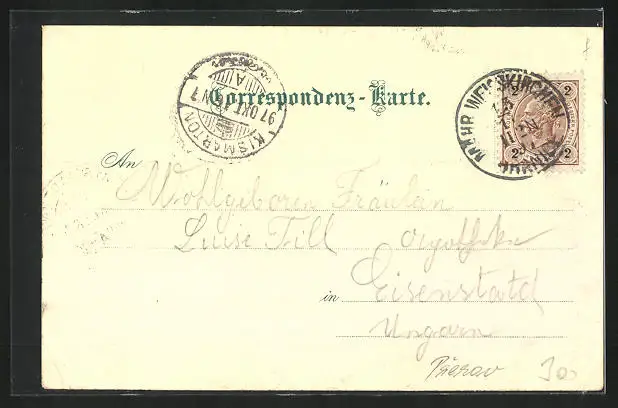 Correspondenz-Karte.
KISMARTON
97 OKT
MÄHR. WEISSKIRCHEN
2 2
2 2
An Wohlgeboren Fräulein
Luise Till
in Eisenstadt
Ungarn
Prerov